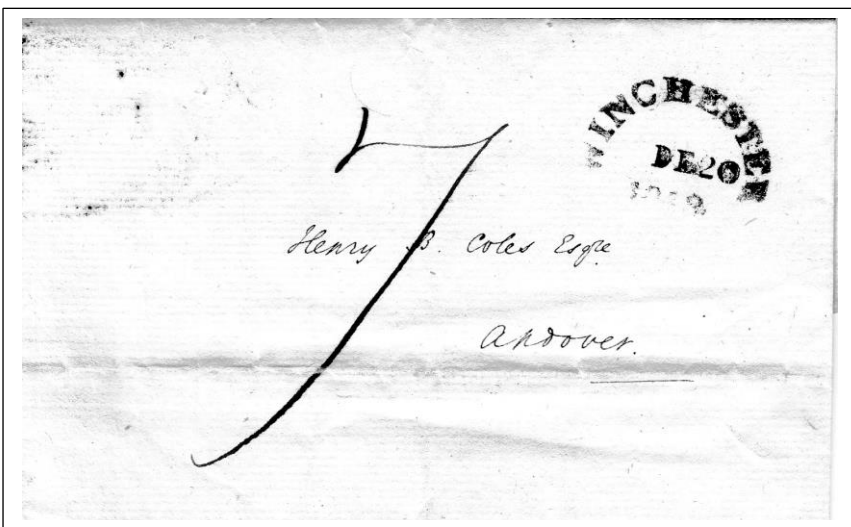 WINCHESTER
DE20
7
Henry B. Coles Esqre
Andover.